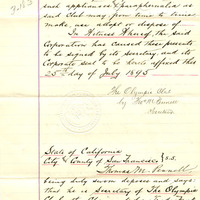 such appliances & paraphernalia as
said Club may from time to time
make, use, adopt or dispose of.
In Witness Whereof, the said
Corporation has caused these presents to
be signed by its secretary, and its
Corporate seal to be hereto affixed this
25th day of July 1895
The Olympic Club
by
Secretary
State of California
City & County of San Francisco } S.S.
Thomas M.
being duly sworn deposes and says:
that he is Secretary of The Olympic